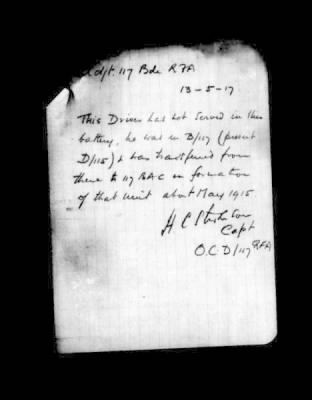 Adjt. 117 Bde RFA
13-5-17
This Driver has not served in this
battery, he was in B/117 (present
D/115) & was transferred from
there to 117 BAC on formation
of that unit about May 1915
H C
Capt
O.C. D/117 RFA